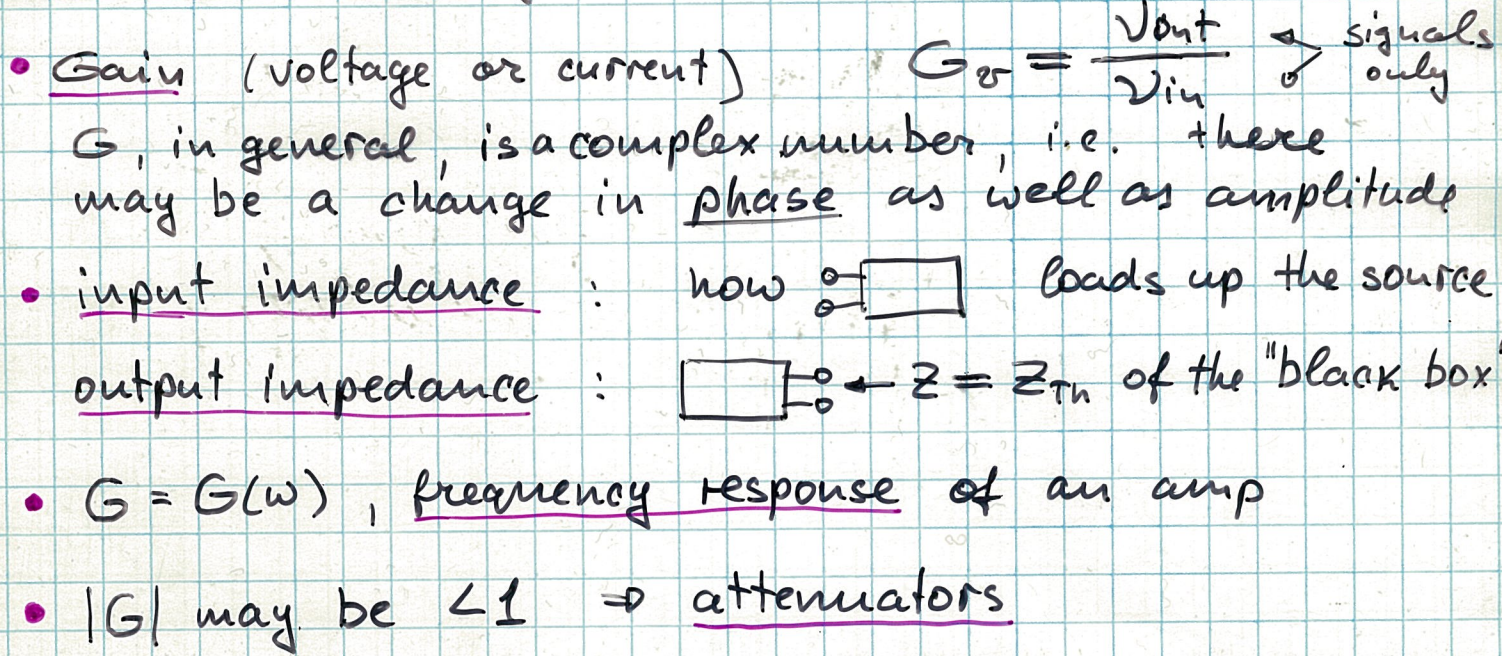 • Gain (voltage or current) G_v = v_out / v_in signals only
G, in general, is a complex number, i.e. there
may be a change in phase as well as amplitude
• input impedance : how loads up the source
output impedance : ← Z = Z_Th of the "black box"
• G = G(ω), frequency response of an amp
• |G| may be <1 ⇒ attenuators